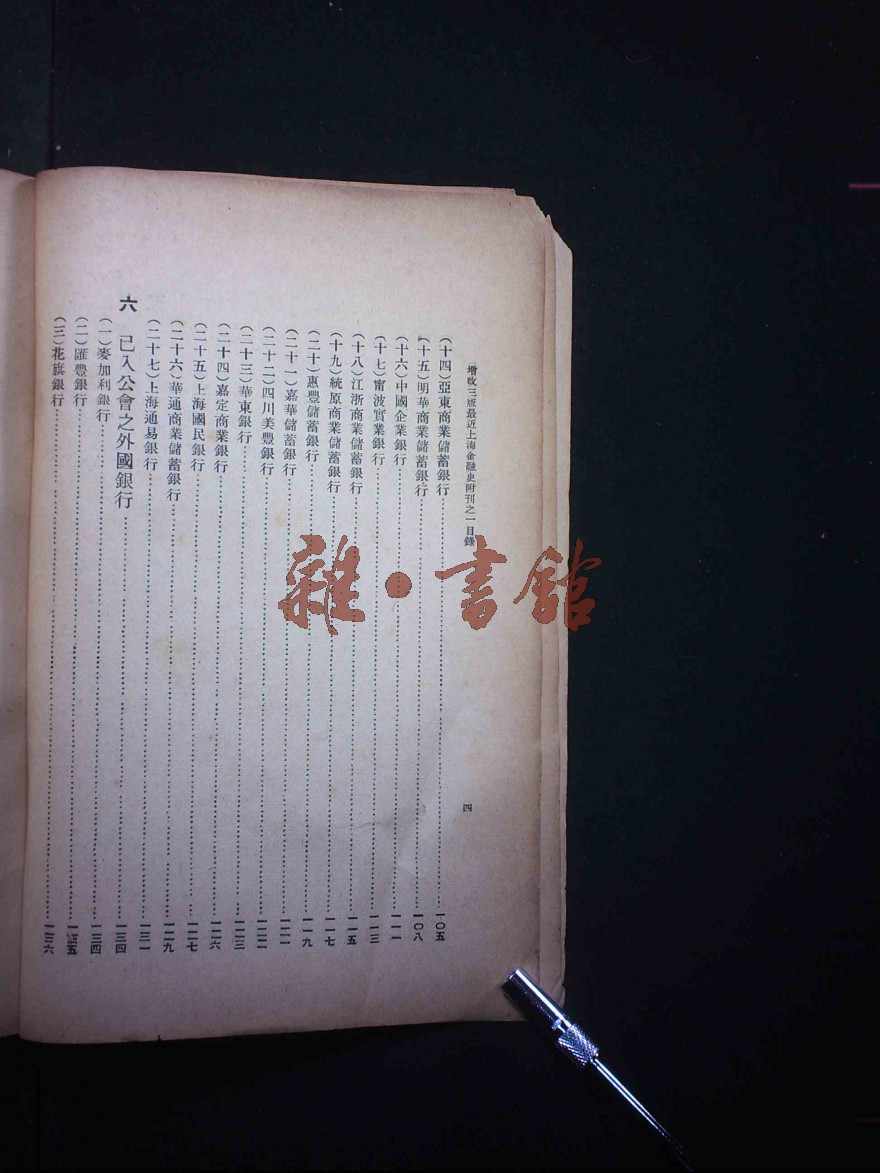 增改三版最近上海金融史附刊之一目錄
四
（十四）亞東商業儲蓄銀行……一〇五
（十五）明華商業儲蓄銀行……一〇八
（十六）中國企業銀行……一一一
（十七）甯波實業銀行……一一三
（十八）江浙商業儲蓄銀行……一一五
（十九）統原商業儲蓄銀行……一一七
（二十）惠豐儲蓄銀行……一一九
（二十一）嘉華儲蓄銀行……一二一
（二十二）四川美豐銀行……一二二
（二十三）華東銀行……一二三
（二十四）嘉定商業銀行……一二六
（二十五）上海國民銀行……一二七
（二十六）華通商業儲蓄銀行……一二九
（二十七）上海通易銀行……一三一
六 已入公會之外國銀行……一三四
（一）麥加利銀行……一三四
（二）匯豐銀行……一三五
（三）花旗銀行……一三六
雜·書館